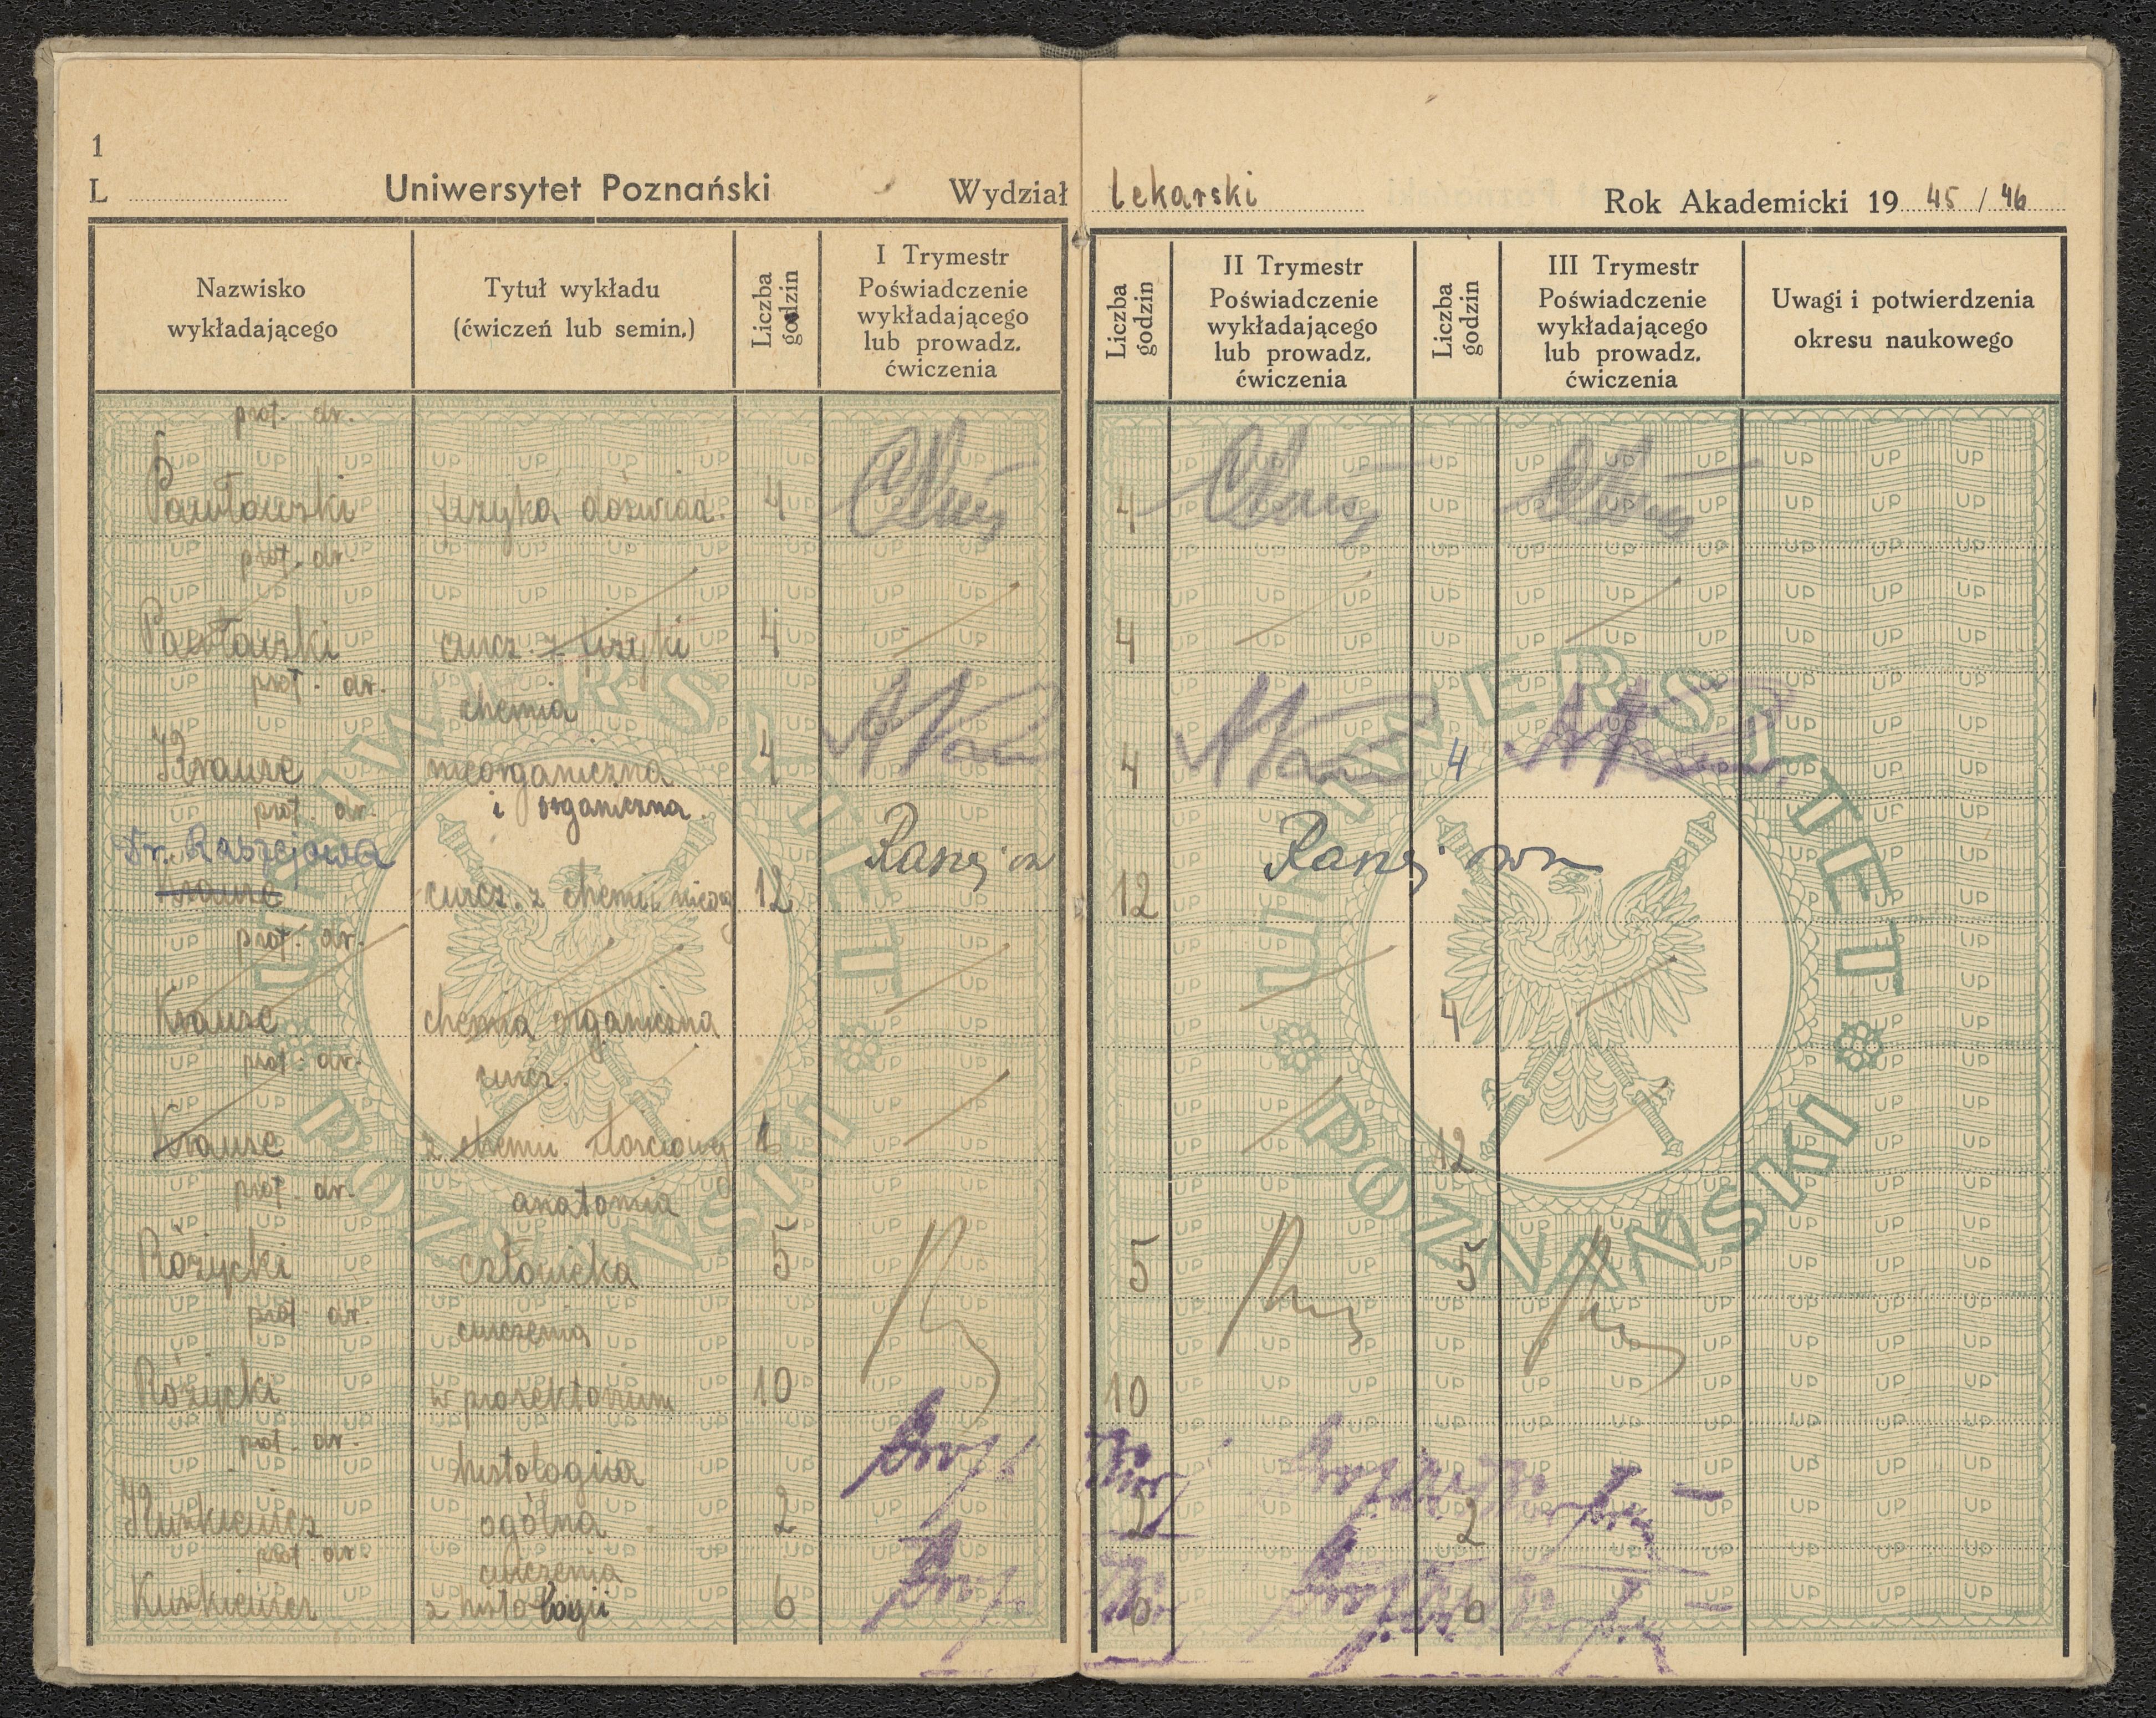 1
L Uniwersytet Poznański Wydział lekarski Rok Akademicki 19 45 / 46
Nazwisko
wykładającego
Tytuł wykładu
(ćwiczeń lub semin.)
Liczba
godzin
I Trymestr
Poświadczenie
wykładającego
lub prowadz.
ćwiczenia
Liczba
godzin
II Trymestr
Poświadczenie
wykładającego
lub prowadz.
ćwiczenia
Liczba
godzin
III Trymestr
Poświadczenie
wykładającego
lub prowadz.
ćwiczenia
Uwagi i potwierdzenia
okresu naukowego
prof. dr.
Pawłowski fizyka doświad. 4 4
prof. dr.
Pawłowski ćwicz. z fizyki 4 4
prof. dr. chemia
Krause nieorganiczna 4 4 4
i organiczna
prof. dr.
Dr. Raszejowa
Krause ćwicz. z chemii nieorg 12 12
prof. dr.
Krause chemia organiczna 4
prof. dr. ćwicz.
Krause z chemii 12
prof. dr. anatomia
Różycki człowieka 5 5 5
prof. dr. ćwiczenia
Różycki w prosektorium 10 10
prof. dr. histologia
Kurkiewicz ogólna 2 2 2
prof. dr. ćwiczenia
Kurkiewicz z histologii 6 6 6
UNIWERSYTET POZNAŃSKI
UNIWERSYTET POZNAŃSKI